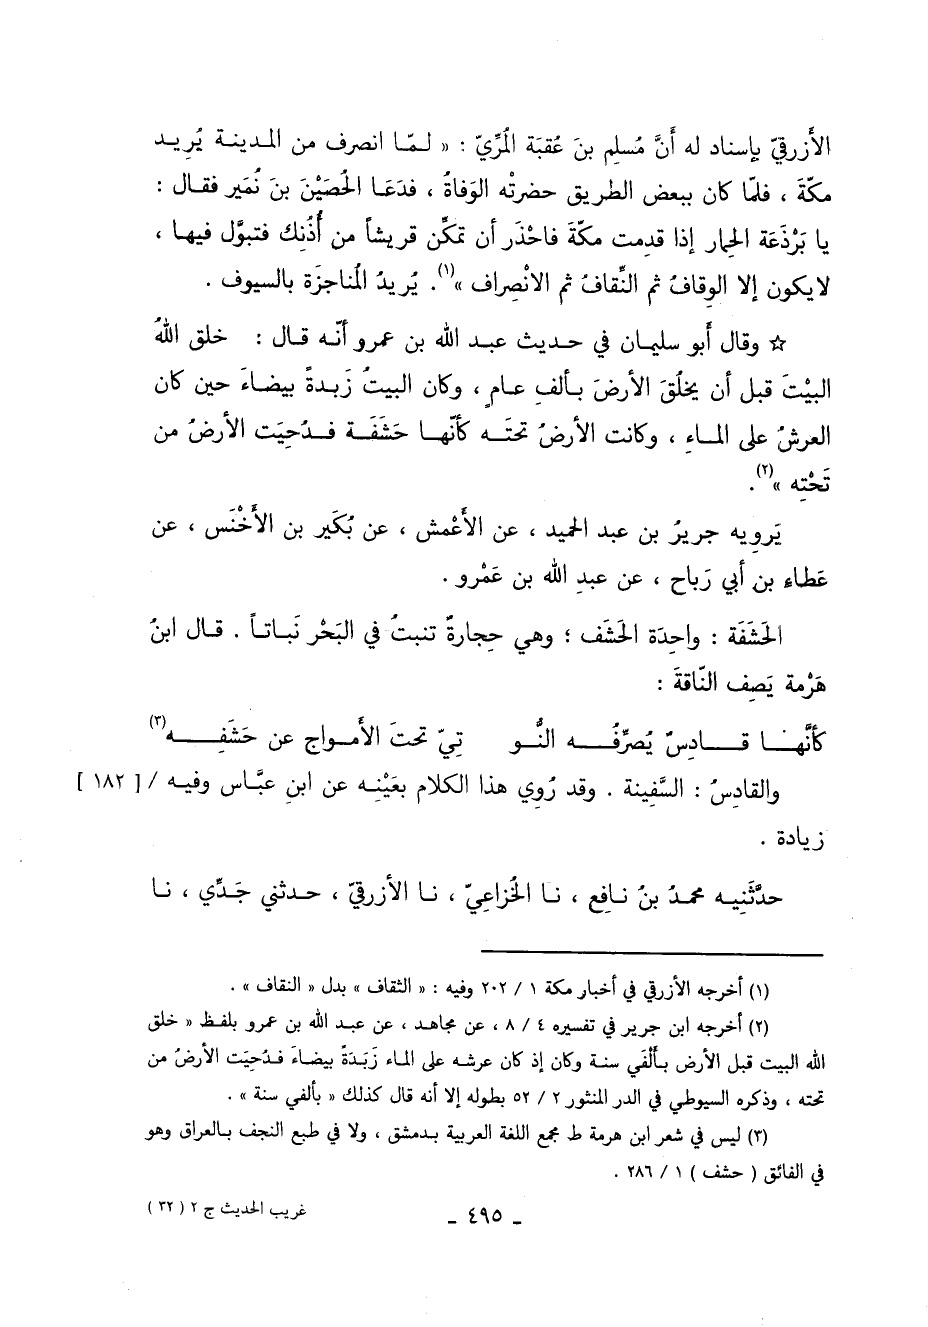 الأَزرقيّ بإسناد له أَنَّ مُسلِم بنَ عُقبَة المُرِّيّ : « لمّا انصرف من المدينة يُريد
مكّةَ ، فلمّا كان ببعض الطريق حضرتْه الوَفاةُ ، فدَعَا الحُصَيْنَ بنَ نُمَير فقال :
يا بَرْدَعَة الحِمار إذا قدِمت مكّةَ فاحْذَر أن تمكّن قريشاً من أُذُنِك فتبوَّل فيها ،
لايكون إلا الوِقافُ ثم النِّقافُ ثم الانْصِراف »(١). يُريدُ المُناجزَة بالسيوف .
☆ وقال أَبو سليمان في حديث عبد الله بن عمرو أنّه قال : خلق اللهُ
البيْتَ قبل أن يخلُقَ الأرضَ بألفِ عامٍ ، وكان البيتُ زَبدةً بيضاءَ حين كان
العرشُ على الماءِ ، وكانت الأرضُ تحتَه كأنّها حَشَفَة فدُحِيَت الأرضُ من
تَحْتِه »(٢).
يَرويه جريرُ بن عبد الحميد ، عن الأَعْمش ، عن بُكَير بن الأَخْنَس ، عن
عَطاء بن أبي رَباح ، عن عبدِ الله بن عَمْرو .
الحَشَفَة : واحِدَة الحَشَف ؛ وهي حِجارةٌ تنبتُ في البَحْر نَباتاً . قال ابنُ
هَرْمة يَصِف النّاقةَ :
كأنَّها قادسٌ يُصرِّفُه النُّو تِيّ تحتَ الأَمواج عن حَشَفِه(٣)
والقادِسُ : السَّفينة . وقد رُوِي هذا الكلام بعَيْنِه عن ابنِ عبَّاس وفيه / [ ١٨٢ ]
زيادة .
حدَّثَنِيه محمدُ بنُ نافِع ، نا الخُزاعِيّ ، نا الأزرقيّ ، حدثني جَدِّي ، نا
(١) أخرجه الأزرقي في أخبار مكة ١ / ٢٠٢ وفيه : « الثقاف » بدل « النقاف » .
(٢) أخرجه ابن جرير في تفسيره ٤ / ٨ ، عن مجاهد ، عن عبد الله بن عمرو بلفظ « خلق
الله البيت قبل الأرض بألْفَي سنة وكان إذ كان عرشه على الماء زَبَدَةً بيضاءَ فدُحِيَت الأرضُ من
تحته ، وذكره السيوطي في الدر المنثور ٢ / ٥٢ بطوله إلا أنه قال كذلك « بألفي سنة » .
(٣) ليس في شعر ابن هرمة ط مجمع اللغة العربية بدمشق ، ولا في طبع النجف بالعراق وهو
في الفائق ( حشف ) ١ / ٢٨٦ .
ـ ٤٩٥ ـ
غريب الحديث ج ٢ ( ٣٢ )